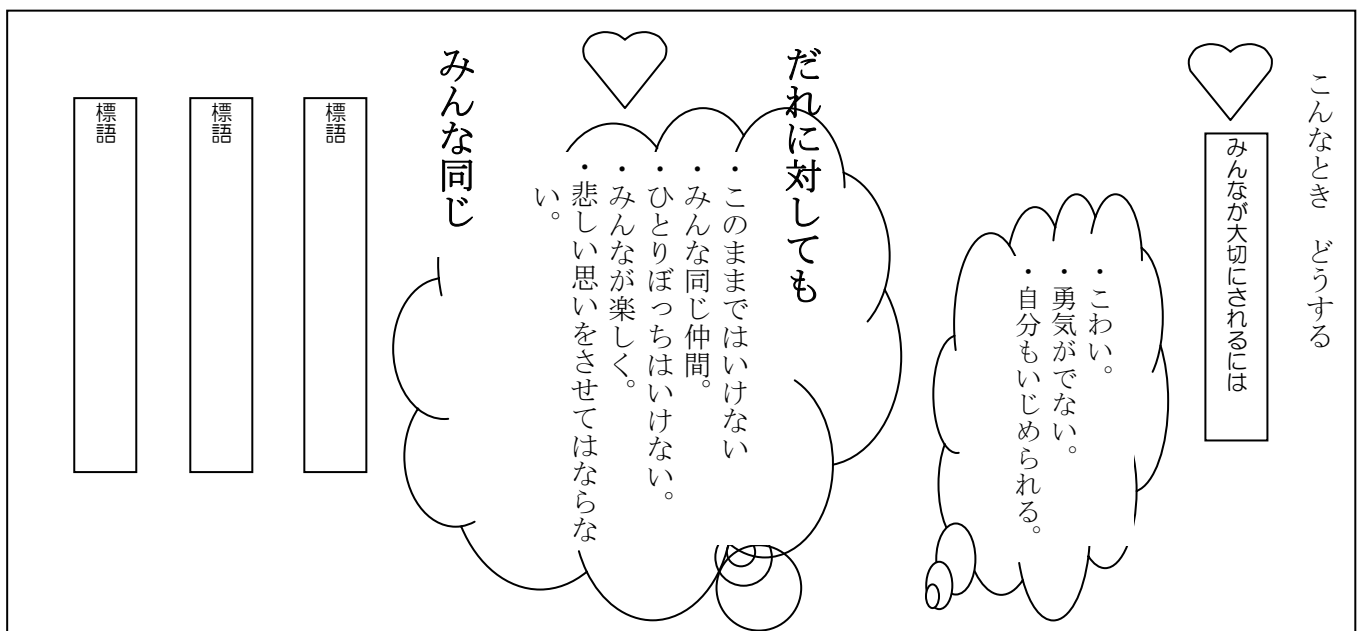 こんなとき　どうする
みんなが大切にされるには
・こわい。
・勇気がでない。
・自分もいじめられる。
だれに対しても
・このままではいけない
・みんな同じ仲間。
・ひとりぼっちはいけない。
・みんなが楽しく。
・悲しい思いをさせてはならな
い。
みんな同じ
標語
標語
標語